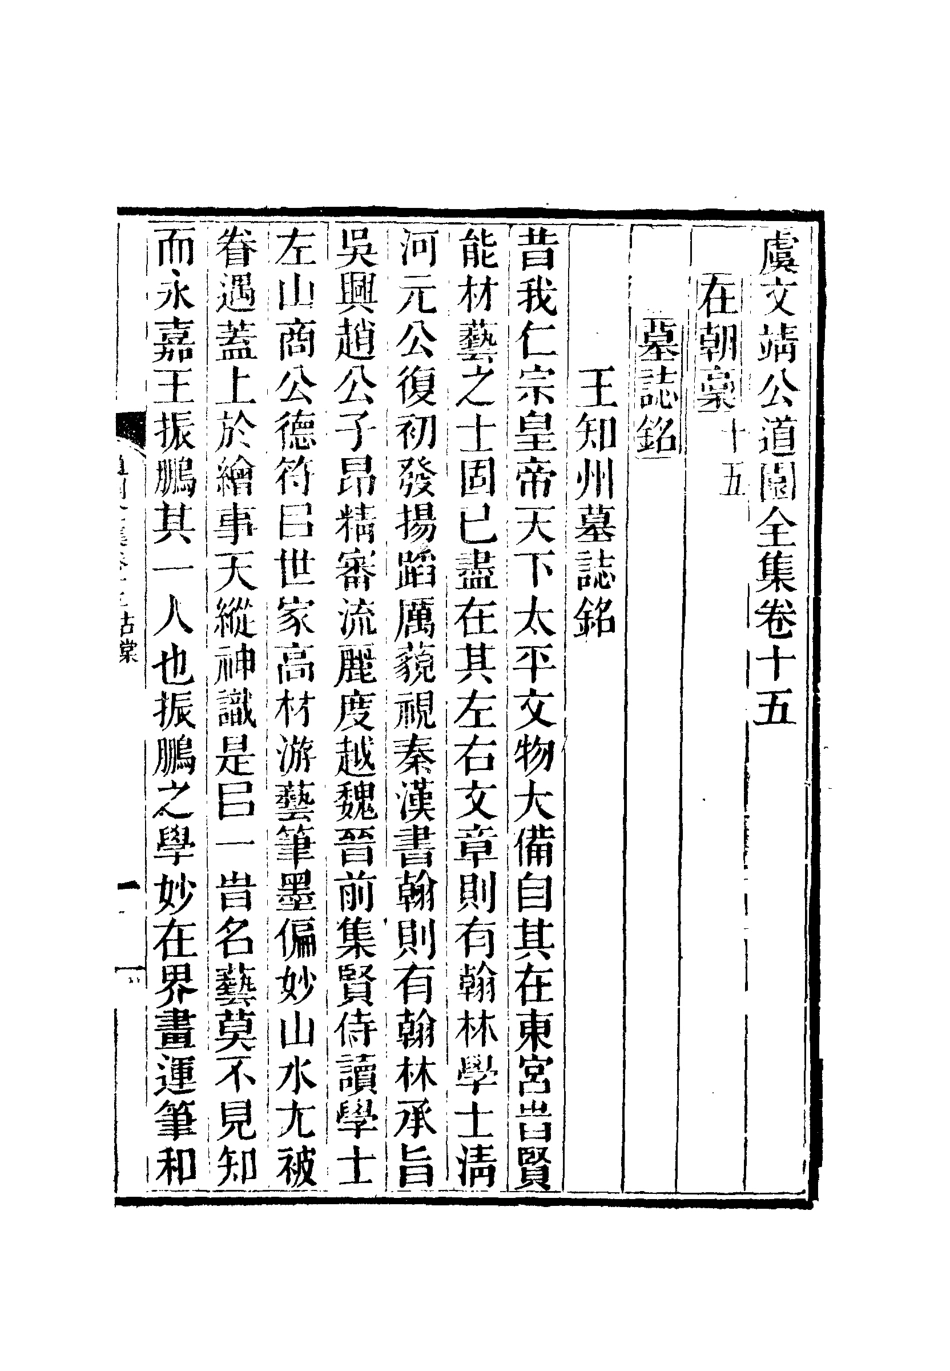 虞文靖公道園全集卷十五
在朝稾十五
墓誌銘
王知州墓誌銘
昔我仁宗皇帝天下太平文物大備自其在東宮旹賢
能材藝之士固已盡在其左右文章則有翰林學士淸
河元公復初發揚蹈厲藐視秦漢書翰則有翰林承旨
吳興趙公子昂精審流麗度越魏晉前集賢侍讀學士
左山商公德符㠯世家高材游藝筆墨偏妙山水尤被
眷遇蓋上於繪事天縱神識是㠯一旹名藝莫不見知
而永嘉王振鵬其一人也振鵬之學妙在界畫運筆和